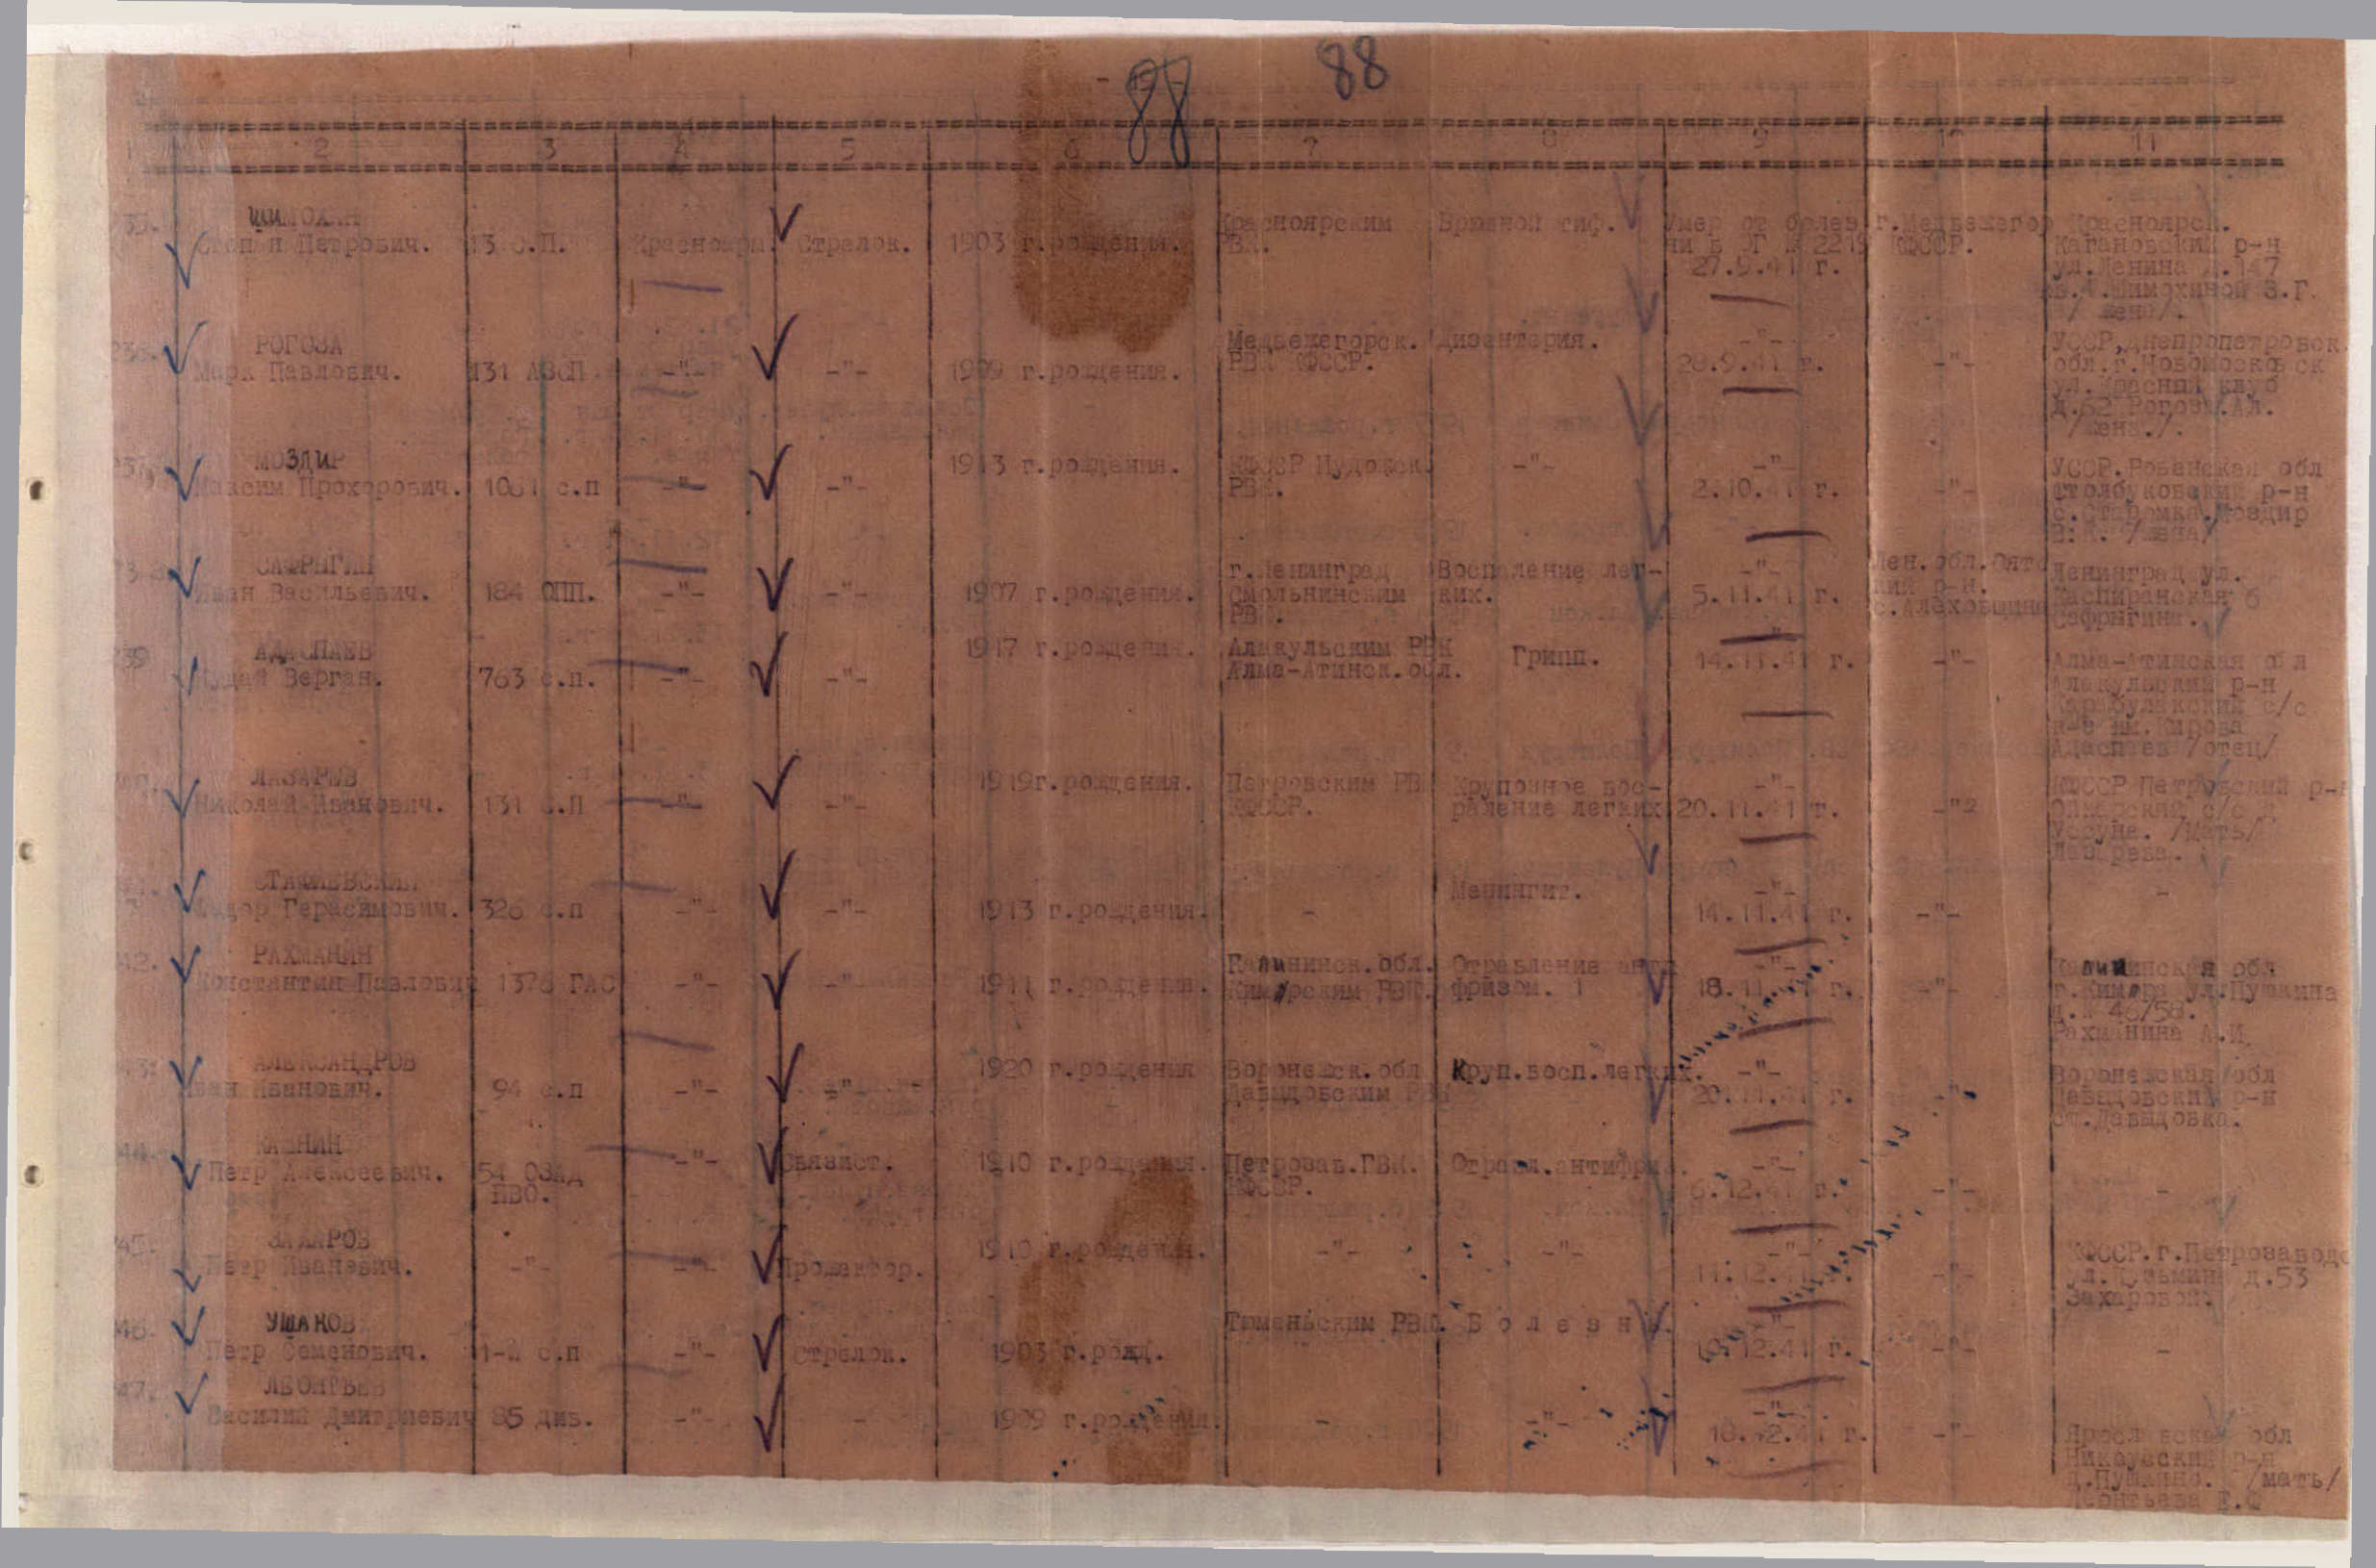 88 88
1 2 3 4 5 6 7 8 9 10 11
ШИМОХИН
Степан Петрович. 13 с.п. Красноарм. Стрелок. 1903 г.рождения.
Красноярским РВК.
Брюшной тиф.
Умер от болез
ни в ЭГ № 2219
27.9.41 г.
г.Медвежегор
КФССР.
Красноярск.
Кагановский р-н
ул.Ленина д.147
кв.4.Шимохиной З.Г.
/ жена/.
236. РОГОЗА
Марк Павлович. 131 АЗСП -"- -"- 1909 г.рождения.
Медвежегорск.
РВК КФССР.
Дизентерия.
-"-
28.9.41 г.
-"-
УССР,Днепропетровск.
обл.г.Новомосковск
ул.Красный клуб
д.52 Рогоза.Ал.
/жена./.
237. МОЗДИР
Максим Прохорович. 1061 с.п -"- -"- 1913 г.рождения.
КФССР Пудожск.
РВК.
-"-
-"-
2.10.41 г.
-"-
УССР.Ровенская обл
р-н
Моздир
/жена/
САФРЫГИН
Иван Васильевич. 184 ОПП. -"- -"- 1907 г.рождения.
г.Ленинград
Смольнинским
РВК.
Воспаление лег-
ких.
-"-
5.11.41 г.
Лен.обл.Оятс
кий р-н.
с.Алеховщина
Ленинград ул.
6
Сафрыгина.
239 АДАСПАЕВ
Верган. 763 с.п. -"- -"- 1917 г.рождения.
Алакульским РВК
Алма-Атинск.обл.
Грипп.
-"-
14.11.41 г.
-"-
Алма-Атинская обл
Алакульский р-н
Карабулакский с/с
к-з им.Кирова
Адаспаев /отец/
ЛАЗАРЕВ
Николай Иванович. 131 с.п -"- -"- 1919г.рождения.
Петровским РВК
КФССР.
Крупозное вос-
паление легких
-"-
20.11.41 г.
-"-
КФССР Петровский р-н
с/с д
/мать/
Лазарева.
СТАФИЕВСКИЙ
Федор Герасимович. 326 с.п -"- -"- 1913 г.рождения.
-
Менингит.
-"-
14.11.41 г.
-"-
-
42. РАХМАНИН
Константин Павлович 1376 ГАС -"- -"- 1911 г.рождения.
Калининск.обл.
Кимрским РВК.
Отравление анти
фризом.
-"-
18.11.41 г.
-"-
Калининская обл
г.Кимры ул.Пушкина
д.№ 46/58.
Рахманина А.И.
43. АЛЕКСАНДРОВ
Иван Иванович. 94 с.п -"- -"- 1920 г.рождения
Воронежск.обл
Давыдовским РВК
Круп.восп.легких.
-"-
20.11.41 г.
-"-
Воронежская обл
Давыдовский р-н
ст.Давыдовка.
44.
Петр Алексеевич. 54 ОЗАД
ПВО.
-"- Связист. 1910 г.рождения.
Петрозав.ГВК.
КФССР.
Отравл.антифриз.
-"-
6.12.41 г.
-"-
-
45. ЗАХАРОВ
Петр Иванович. -"- -"- Прожектор. 1910 г.рождения.
-"-
-"-
-"-
11.12.41
-"-
КФССР.г.Петрозаводс
д.53
Захаровой.
46. УШАКОВ
Петр Семенович. с.п -"- Стрелок. 1903 г.рожд.
Тюменьским РВК.
Б о л е з н ь.
-"-
12.41 г.
-"-
-
47. ЛЕОНТЬЕВ
Василий Дмитриевич 85 див. -"- - 1909 г.рождения.
-
-"-
-"-
18.12.41 г.
-"-
Ярославская обл
р-н
д.Пушкино. /мать/
Леонтьева Е.С